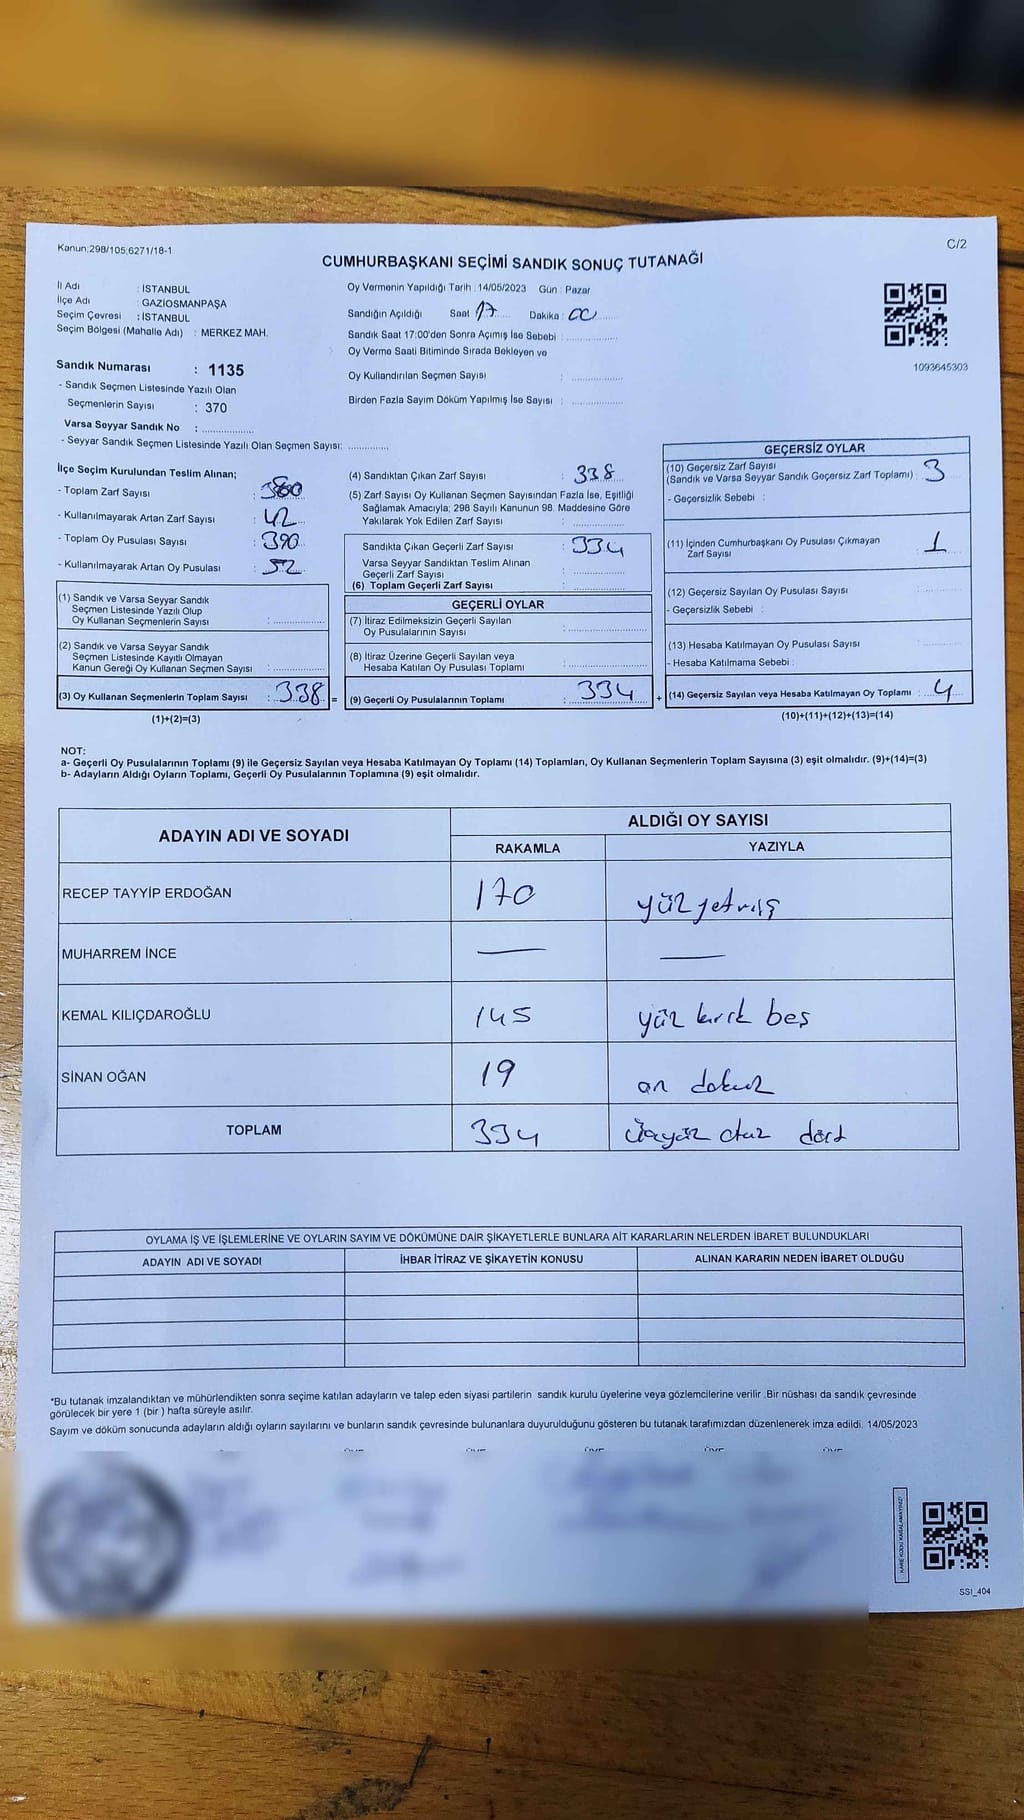 Kanun;298/105;6271/18-1
C/2
CUMHURBAŞKANI SEÇİMİ SANDIK SONUÇ TUTANAĞI
İl Adı : İSTANBUL
İlçe Adı : GAZİOSMANPAŞA
Seçim Çevresi : İSTANBUL
Seçim Bölgesi (Mahalle Adı) : MERKEZ MAH.
Oy Vermenin Yapıldığı Tarih : 14/05/2023 Gün : Pazar
Sandığın Açıldığı Saat 17 Dakika : 00
Sandık Saat 17:00'den Sonra Açımış İse Sebebi :
Oy Verme Saati Bitiminde Sırada Bekleyen ve
Oy Kullandırılan Seçmen Sayısı :
Birden Fazla Sayım Döküm Yapılmış İse Sayısı :
1093645303
Sandık Numarası : 1135
- Sandık Seçmen Listesinde Yazılı Olan
Seçmenlerin Sayısı : 370
Varsa Seyyar Sandık No :
- Seyyar Sandık Seçmen Listesinde Yazılı Olan Seçmen Sayısı:
İlçe Seçim Kurulundan Teslim Alınan;
- Toplam Zarf Sayısı : 380
- Kullanılmayarak Artan Zarf Sayısı : 42
- Toplam Oy Pusulası Sayısı : 390
- Kullanılmayarak Artan Oy Pusulası : 52
(1) Sandık ve Varsa Seyyar Sandık
Seçmen Listesinde Yazılı Olup
Oy Kullanan Seçmenlerin Sayısı :
(2) Sandık ve Varsa Seyyar Sandık
Seçmen Listesinde Kayıtlı Olmayan
Kanun Gereği Oy Kullanan Seçmen Sayısı :
(3) Oy Kullanan Seçmenlerin Toplam Sayısı : 338 =
(1)+(2)=(3)
(4) Sandıktan Çıkan Zarf Sayısı : 338
(5) Zarf Sayısı Oy Kullanan Seçmen Sayısından Fazla İse, Eşitliği
Sağlamak Amacıyla; 298 Sayılı Kanunun 98. Maddesine Göre
Yakılarak Yok Edilen Zarf Sayısı :
Sandıkta Çıkan Geçerli Zarf Sayısı : 334
Varsa Seyyar Sandıktan Teslim Alınan
Geçerli Zarf Sayısı :
(6) Toplam Geçerli Zarf Sayısı :
GEÇERLİ OYLAR
(7) İtiraz Edilmeksizin Geçerli Sayılan
Oy Pusulalarının Sayısı :
(8) İtiraz Üzerine Geçerli Sayılan veya
Hesaba Katılan Oy Pusulası Toplamı :
(9) Geçerli Oy Pusulalarının Toplamı : 334 +
GEÇERSİZ OYLAR
(10) Geçersiz Zarf Sayısı
(Sandık ve Varsa Seyyar Sandık Geçersiz Zarf Toplamı) : 3
- Geçersizlik Sebebi :
(11) İçinden Cumhurbaşkanı Oy Pusulası Çıkmayan
Zarf Sayısı 1
(12) Geçersiz Sayılan Oy Pusulası Sayısı
- Geçersizlik Sebebi :
(13) Hesaba Katılmayan Oy Pusulası Sayısı
- Hesaba Katılmama Sebebi :
(14) Geçersiz Sayılan veya Hesaba Katılmayan Oy Toplamı : 4
(10)+(11)+(12)+(13)=(14)
NOT:
a- Geçerli Oy Pusulalarının Toplamı (9) ile Geçersiz Sayılan veya Hesaba Katılmayan Oy Toplamı (14) Toplamları, Oy Kullanan Seçmenlerin Toplam Sayısına (3) eşit olmalıdır. (9)+(14)=(3)
b- Adayların Aldığı Oyların Toplamı, Geçerli Oy Pusulalarının Toplamına (9) eşit olmalıdır.
ADAYIN ADI VE SOYADI
ALDIĞI OY SAYISI
RAKAMLA YAZIYLA
RECEP TAYYİP ERDOĞAN 170 yüz yetmiş
MUHARREM İNCE — —
KEMAL KILIÇDAROĞLU 145 yüz kırk beş
SİNAN OĞAN 19 on dokuz
TOPLAM 334 üçyüz otuz dört
OYLAMA İŞ VE İŞLEMLERİNE VE OYLARIN SAYIM VE DÖKÜMÜNE DAİR ŞİKAYETLERLE BUNLARA AİT KARARLARIN NELERDEN İBARET BULUNDUKLARI
ADAYIN ADI VE SOYADI İHBAR İTİRAZ VE ŞİKAYETİN KONUSU ALINAN KARARIN NEDEN İBARET OLDUĞU
*Bu tutanak imzalandıktan ve mühürlendikten sonra seçime katılan adayların ve talep eden siyasi partilerin sandık kurulu üyelerine veya gözlemcilerine verilir .Bir nüshası da sandık çevresinde
görülecek bir yere 1 (bir ) hafta süreyle asılır.
Sayım ve döküm sonucunda adayların aldığı oyların sayılarını ve bunların sandık çevresinde bulunanlara duyurulduğunu gösteren bu tutanak tarafımızdan düzenlenerek imza edildi. 14/05/2023
KARE KODU KARALAMAYINIZ!
SSI_404